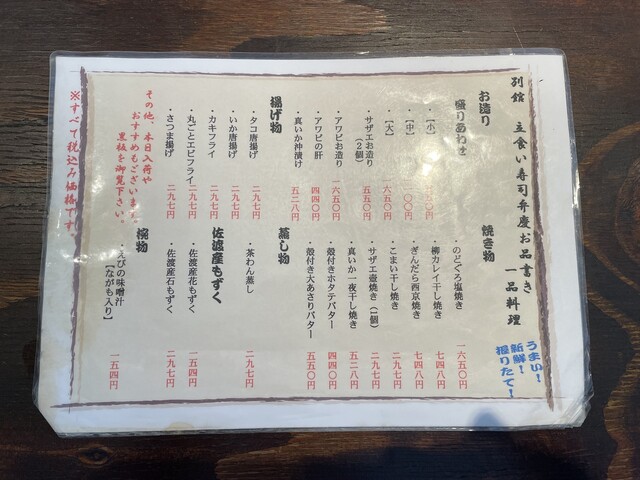 別館 立食い寿司弁慶お品書き
一品料理
うまい！
新鮮！
握りたて！
お造り
盛りあわせ
・【小】
・【中】
・【大】 一六五〇円
・サザエお造り
（２個） 五五〇円
・アワビお造り 一六五〇円
・アワビの肝 四四〇円
・真いか沖漬け 五二八円
揚げ物
・タコ唐揚げ 二九七円
・いか唐揚げ 二九七円
・カキフライ 二九七円
・丸ごとエビフライ 二九七円
・さつま揚げ 二九七円
その他、本日入荷や
おすすめもございます。
黒板を御覧下さい。
※すべて税込み価格です。
焼き物
・のどぐろ塩焼き 一六五〇円
・柳カレイ干し焼き 七四八円
・ぎんだら西京焼き 七四八円
・こまい干し焼き 二九七円
・サザエ壷焼き（１個） 二九七円
・真いか一夜干し焼き 五二八円
・殻付きホタテバター 四四〇円
・殻付き大あさりバター 五五〇円
蒸し物
・茶わん蒸し 二九七円
佐渡産もずく
・佐渡産花もずく 一五四円
・佐渡産石もずく 二九七円
椀物
・えびの味噌汁
【ながも入り】 一五四円